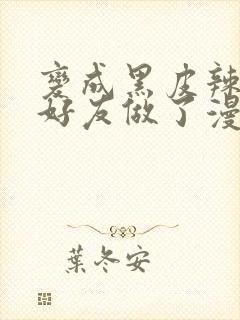 變成黑皮辣
好友做了漫
葉冬安